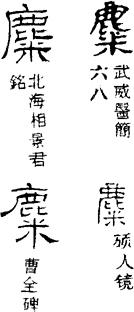 麋
武威醫簡
六八
麋
北海相景君
銘
麋
硕人镜
麋
曹全碑